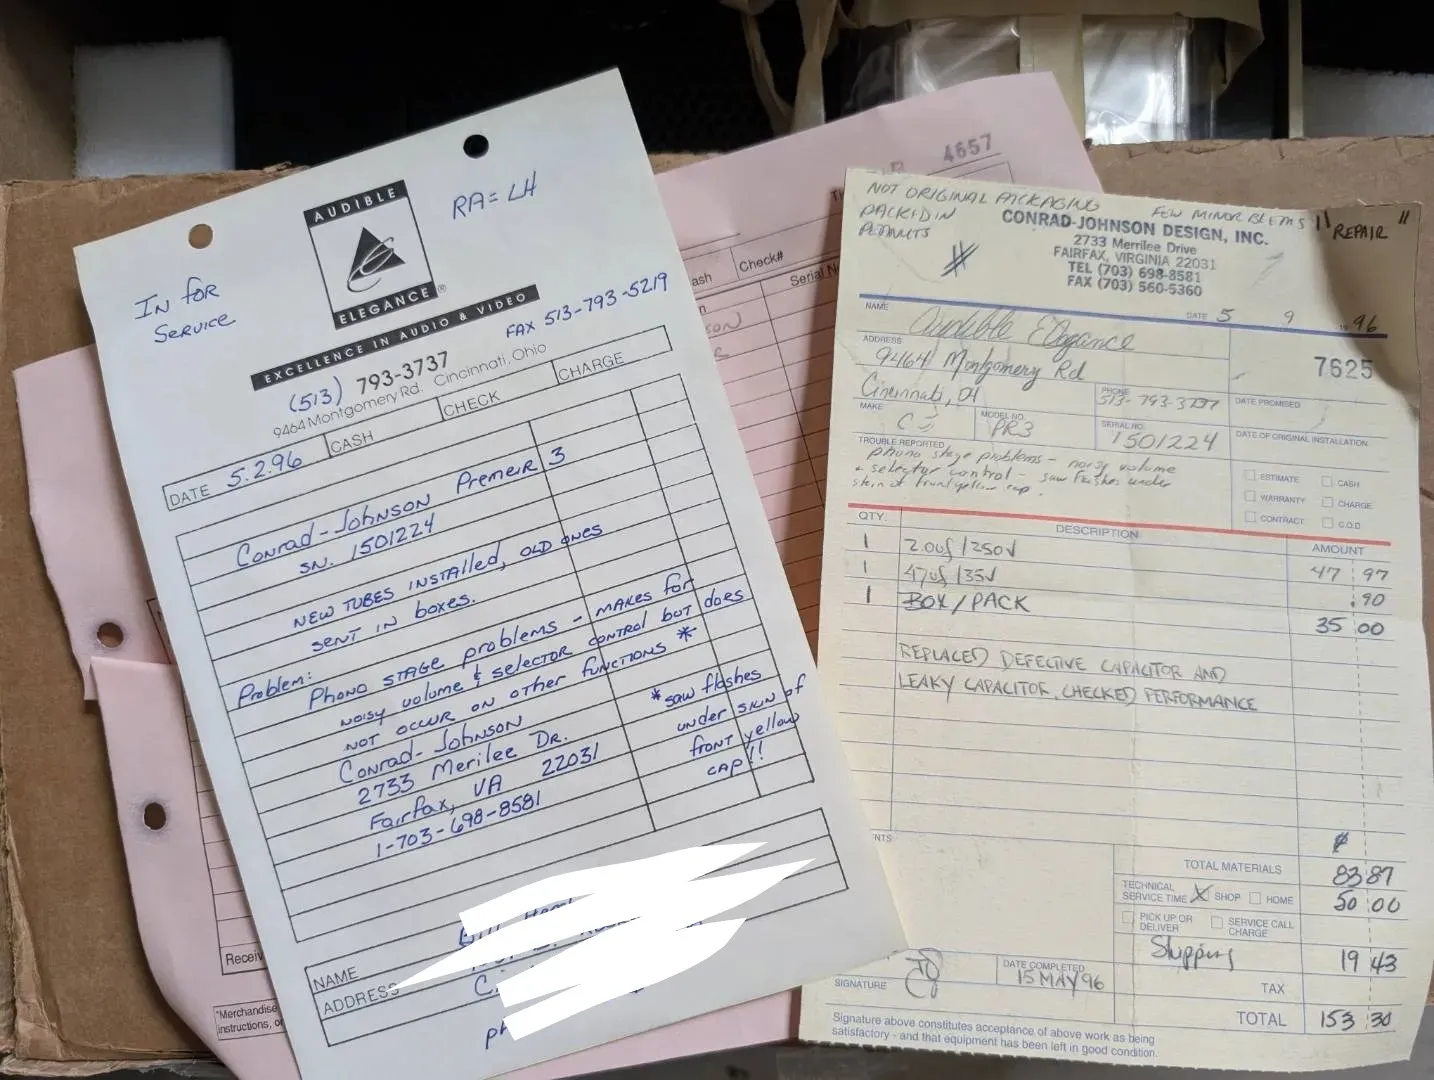 IN FOR
SERVICE
RA = LH
AUDIBLE
ELEGANCE®
EXCELLENCE IN AUDIO & VIDEO
(513) 793-3737
FAX 513-793-5219
9464 Montgomery Rd. Cincinnati, Ohio
DATE 5.2.96
CASH
CHECK
CHARGE
CONRAD-JOHNSON Premeir 3
SN. 1501224
NEW TUBES INSTAlled, OLD ONES
SENT IN boxes.
Problem:
Phono STAGE problems - MAKES for
NOISY VOLUME & SELECTOR CONTROL BUT does
NOT OCCUR ON OTHER FUNCTIONS *
* SAW flashes
under SIGN of
front yellow
CAP!!
Conrad-Johnson
2733 Merilee Dr.
Fairfax, VA 22031
1-703-698-8581
NAME
ADDRESS
4657
Check#
Serial
Receiv
*Merchandise
instructions, or
NOT ORIGINAL PACKAGING
PACKED IN
PEANUTS
FEW MINOR BLEMS
"REPAIR"
CONRAD-JOHNSON DESIGN, INC.
2733 Merrilee Drive
FAIRFAX, VIRGINIA 22031
TEL (703) 698-8581
FAX (703) 560-5360
NAME
Audible Elegance
DATE 5 9 1996
ADDRESS
9464 Montgomery Rd
7625
Cincinnati, OH
PHONE
513-793-3737
DATE PROMISED
MAKE
CJ
MODEL NO.
PR3
SERIAL NO.
1501224
DATE OF ORIGINAL INSTALLATION
TROUBLE REPORTED
phono stage problems - noisy volume
+ selector control - saw flashes under
sign of front yellow cap.
ESTIMATE
CASH
WARRANTY
CHARGE
CONTRACT
C.O.D
QTY.
DESCRIPTION
AMOUNT
1 2.0uf/250V 47 97
1 47uf/35V .90
1 BOX/PACK 35 00
REPLACED DEFECTIVE CAPACITOR AND
LEAKY CAPACITOR, CHECKED PERFORMANCE
NTS
TOTAL MATERIALS 83 87
TECHNICAL
SERVICE TIME X SHOP HOME 50 00
PICK UP OR
DELIVER
SERVICE CALL
CHARGE
Shipping 19 43
SIGNATURE
DATE COMPLETED
15 MAY 96
TAX
TOTAL 153 30
Signature above constitutes acceptance of above work as being
satisfactory - and that equipment has been left in good condition.